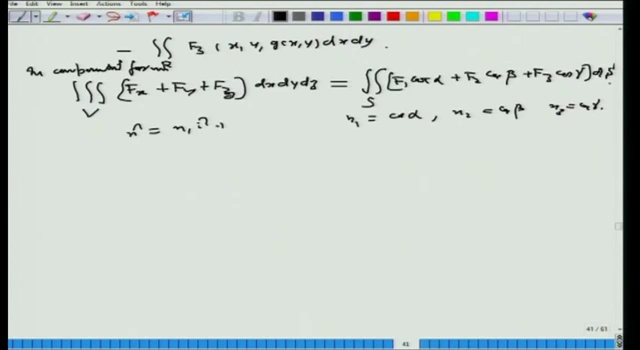 File Edit View Insert Actions Tools Help
− ∬ F₃ (x, y, g(x,y)) dx dy.
R
In component form
∭ [Fx + Fy + Fz] dx dy dz = ∬ [F₁ cos α + F₂ cos β + F₃ cos γ] dS
V S
n₁ = cos α, n₂ = cos β n₃ = cos γ.
n̂ = n₁
41 / 61
41